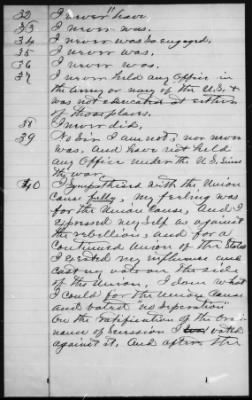 32 I never have
33 I never was.
34 I never was so engaged.
35 I never was.
36 I never was.
37 I never held any Office in
the Army or navy of the U.S. &
was not educated at either
of those places.
38 I never did.
39 No Sir I am not, nor never
was. And have not held
any Office under the U.S. since
the war.
40 I sympathised with the Union
cause fully, My feeling was
for the Union Cause, And I
expressed myself as against
the rebellion, and for a
continued Union of the States
I exerted my influence and
cast my vote on the side
of the Union, I done what
I could for the Union Cause
and voted no Seperation
On the ratification of the Ordi
nance of Secession I voted
against it. And after the